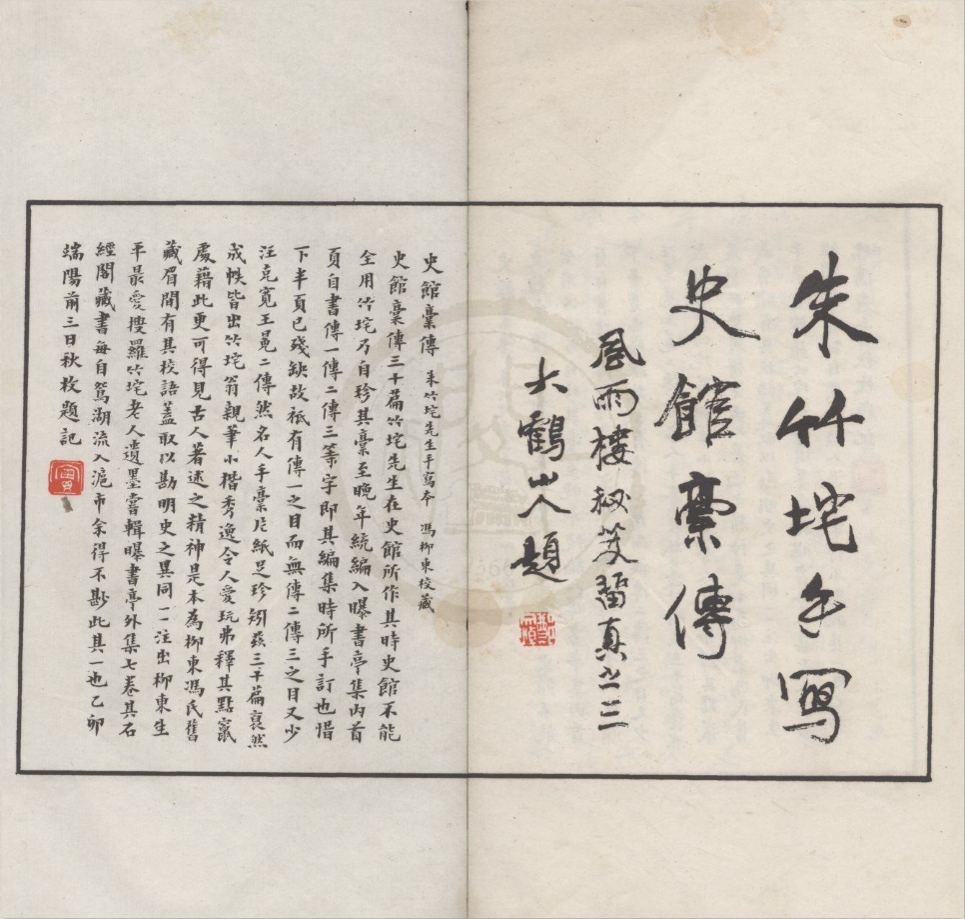 朱竹垞手寫
史館稾傳
風雨樓祕笈留真之三
大鶴山人題
史館稾傳 朱竹垞先生手寫本 馮柳東校藏
史館稾傳三十篇竹垞先生在史館所作其時史館不能
全用竹垞乃自珍其稾至晚年統編入曝書亭集內首
頁自書傳一傳二傳三等字即其編集時所手訂也惜
下半頁已殘缺故祇有傳一之目而無傳二傳三之目又少
汪克寬王冕二傳然名人手稾片紙足珍矧茲三十篇裒然
成帙皆出竹垞翁親筆小楷秀逸令人愛玩弗釋其點竄
處藉此更可得見古人著述之精神是本為柳東馮氏舊
藏眉間有其校語蓋取以勘明史之異同一一注出柳東生
平最愛搜羅竹垞老人遺墨嘗輯曝書亭外集七卷其石
經閣藏書每自鴛湖流入滬市余得不尠此其一也乙卯
端陽前三日秋枚題記